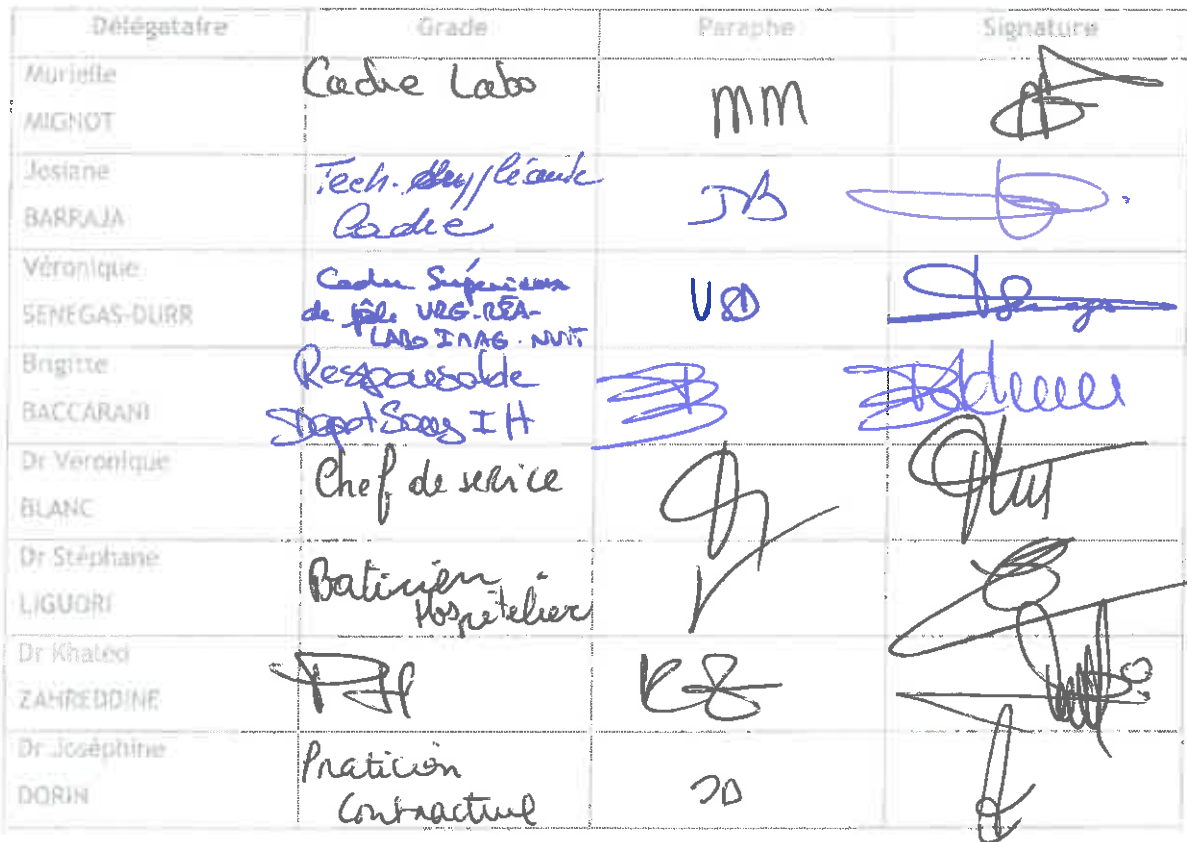 Délégataire Grade Paraphe Signature
Murielle
MIGNOT
Cadre Labo
MM
Josiane
BARRAJA
Tech.
Cadre
JB
Véronique
SENEGAS-DURR
Cadre Supérieur
de pôle URG-REA-
LABO IMAG. NUIT
VSD
Brigitte
BACCARANI
Responsable
Depot Sang IH
Dr Veronique
BLANC
Chef de service
Dr Stéphane
LIGUORI
Praticien
Hospitalier
Dr Khaled
ZAHREDDINE
PH
KZ
Dr Joséphine
DORIN
Praticien
Contractuel
JD